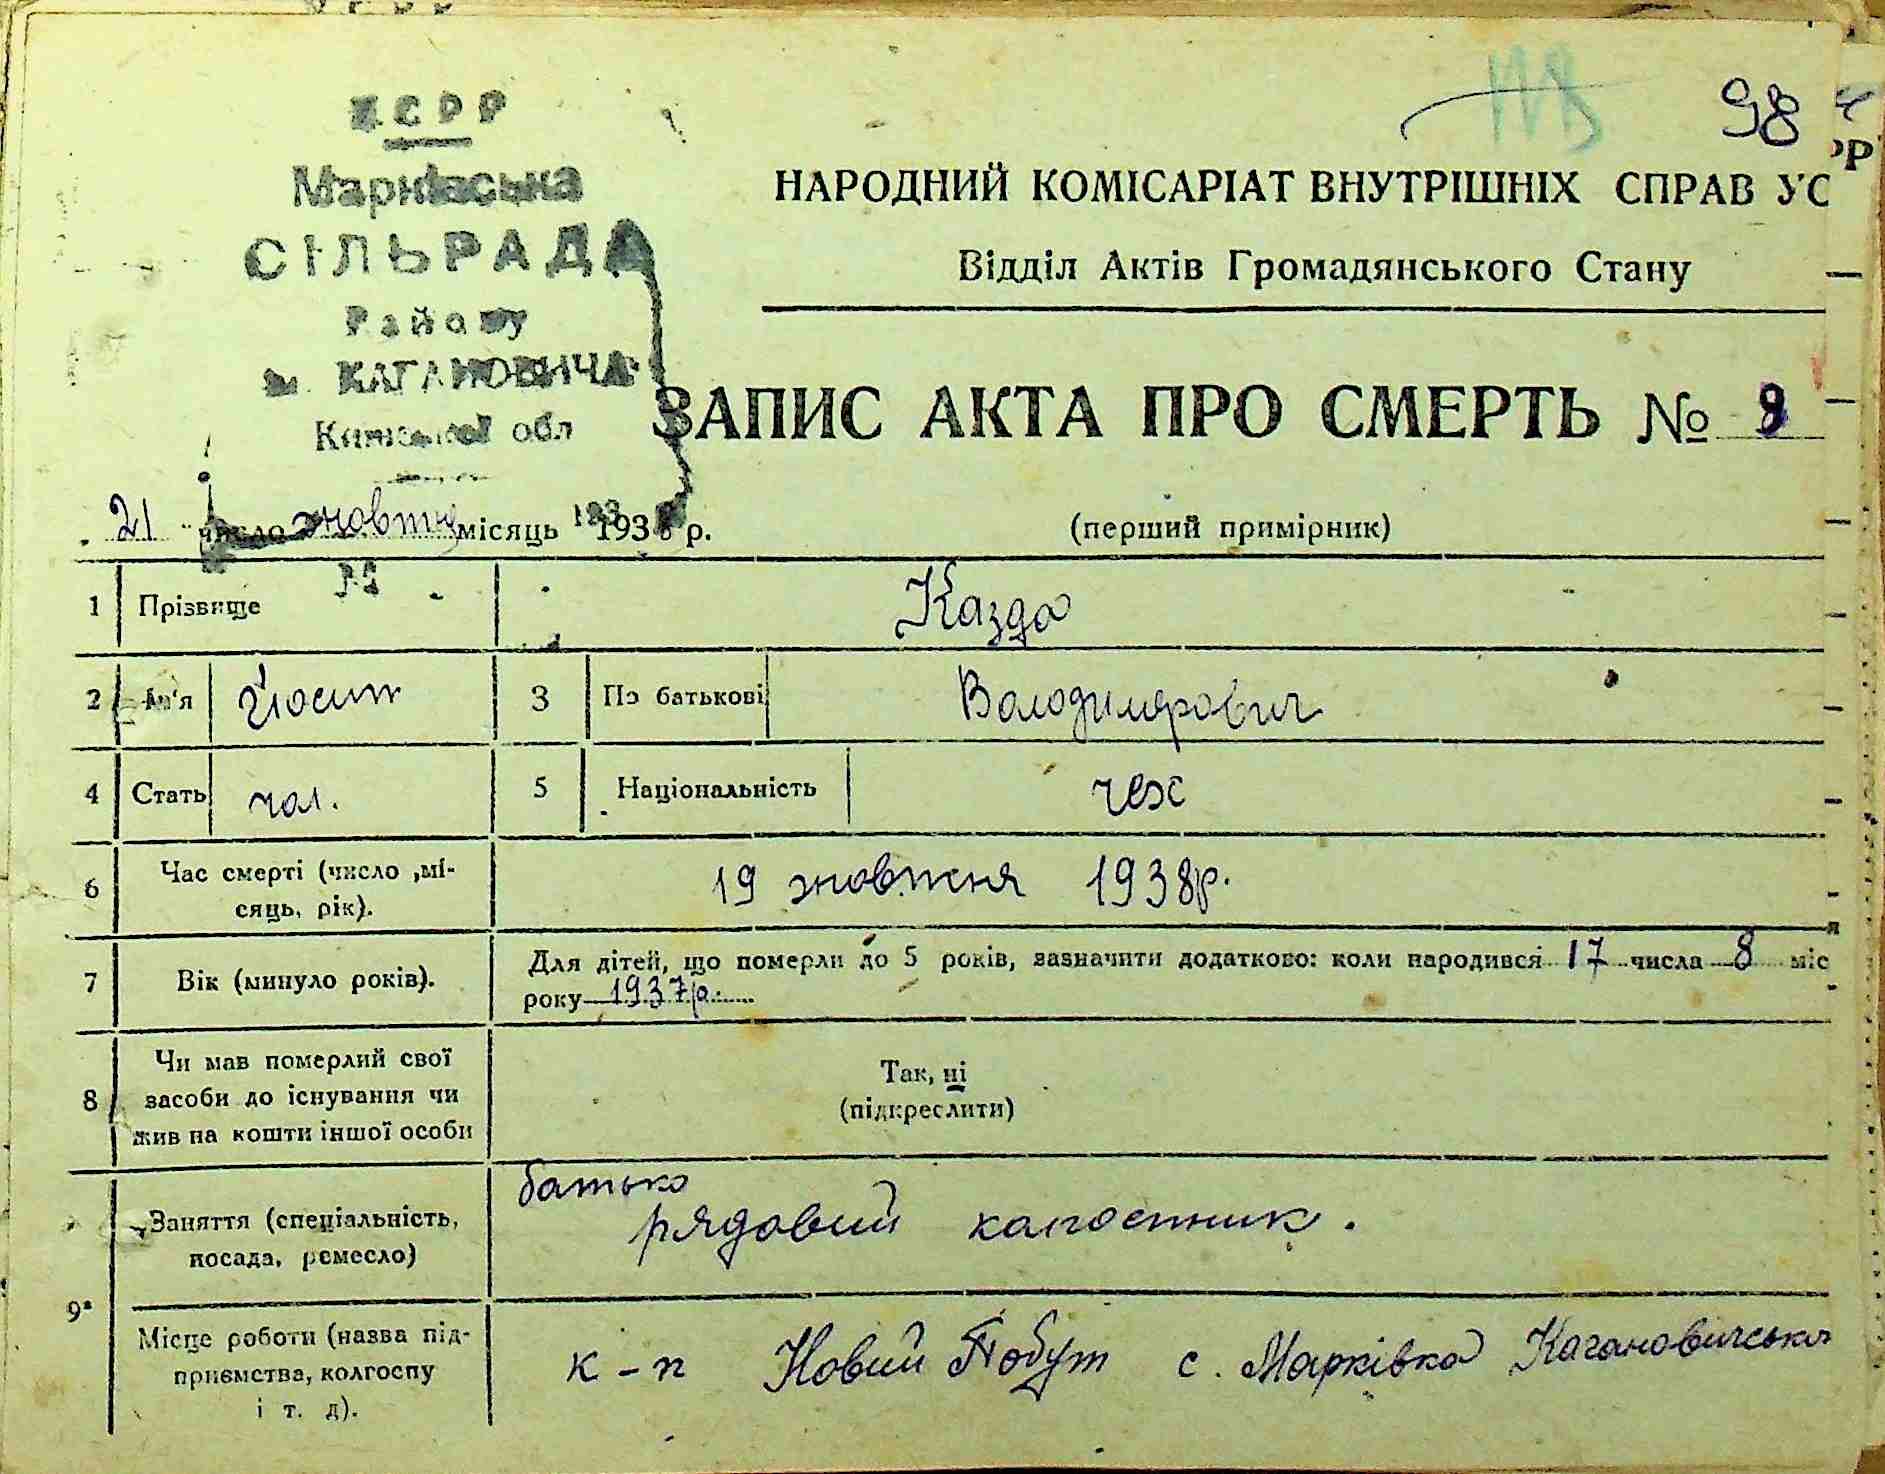 УСРР
98
Марківська
СІЛЬРАДА
Району
ім. КАГАНОВИЧА
Київської обл
НАРОДНИЙ КОМІСАРІАТ ВНУТРІШНІХ СПРАВ УС
Відділ Актів Громадянського Стану
ЗАПИС АКТА ПРО СМЕРТЬ № 9
21 число жовтня місяць 1938 р.
(перший примірник)
1 Прізвище Казда
2 Ім'я Йосип 3 По батькові Володимирович
4 Стать чол. 5 Національність чех
6 Час смерті (число ,мі-
сяць, рік).
19 жовтня 1938р.
7 Вік (минуло років).
Для дітей, що померли до 5 років, зазначити додатково: коли народився 17 числа 8 міс
року 1937р.
8 Чи мав померлий свої
засоби до існування чи
жив на кошти іншої особи
Так, ні
(підкреслити)
9* Заняття (спеціальність,
посада, ремесло)
батько
рядовий колгоспник.
Місце роботи (назва під-
приємства, колгоспу
і т. д).
к-п Новий Побут с. Марківка Кагановичськ